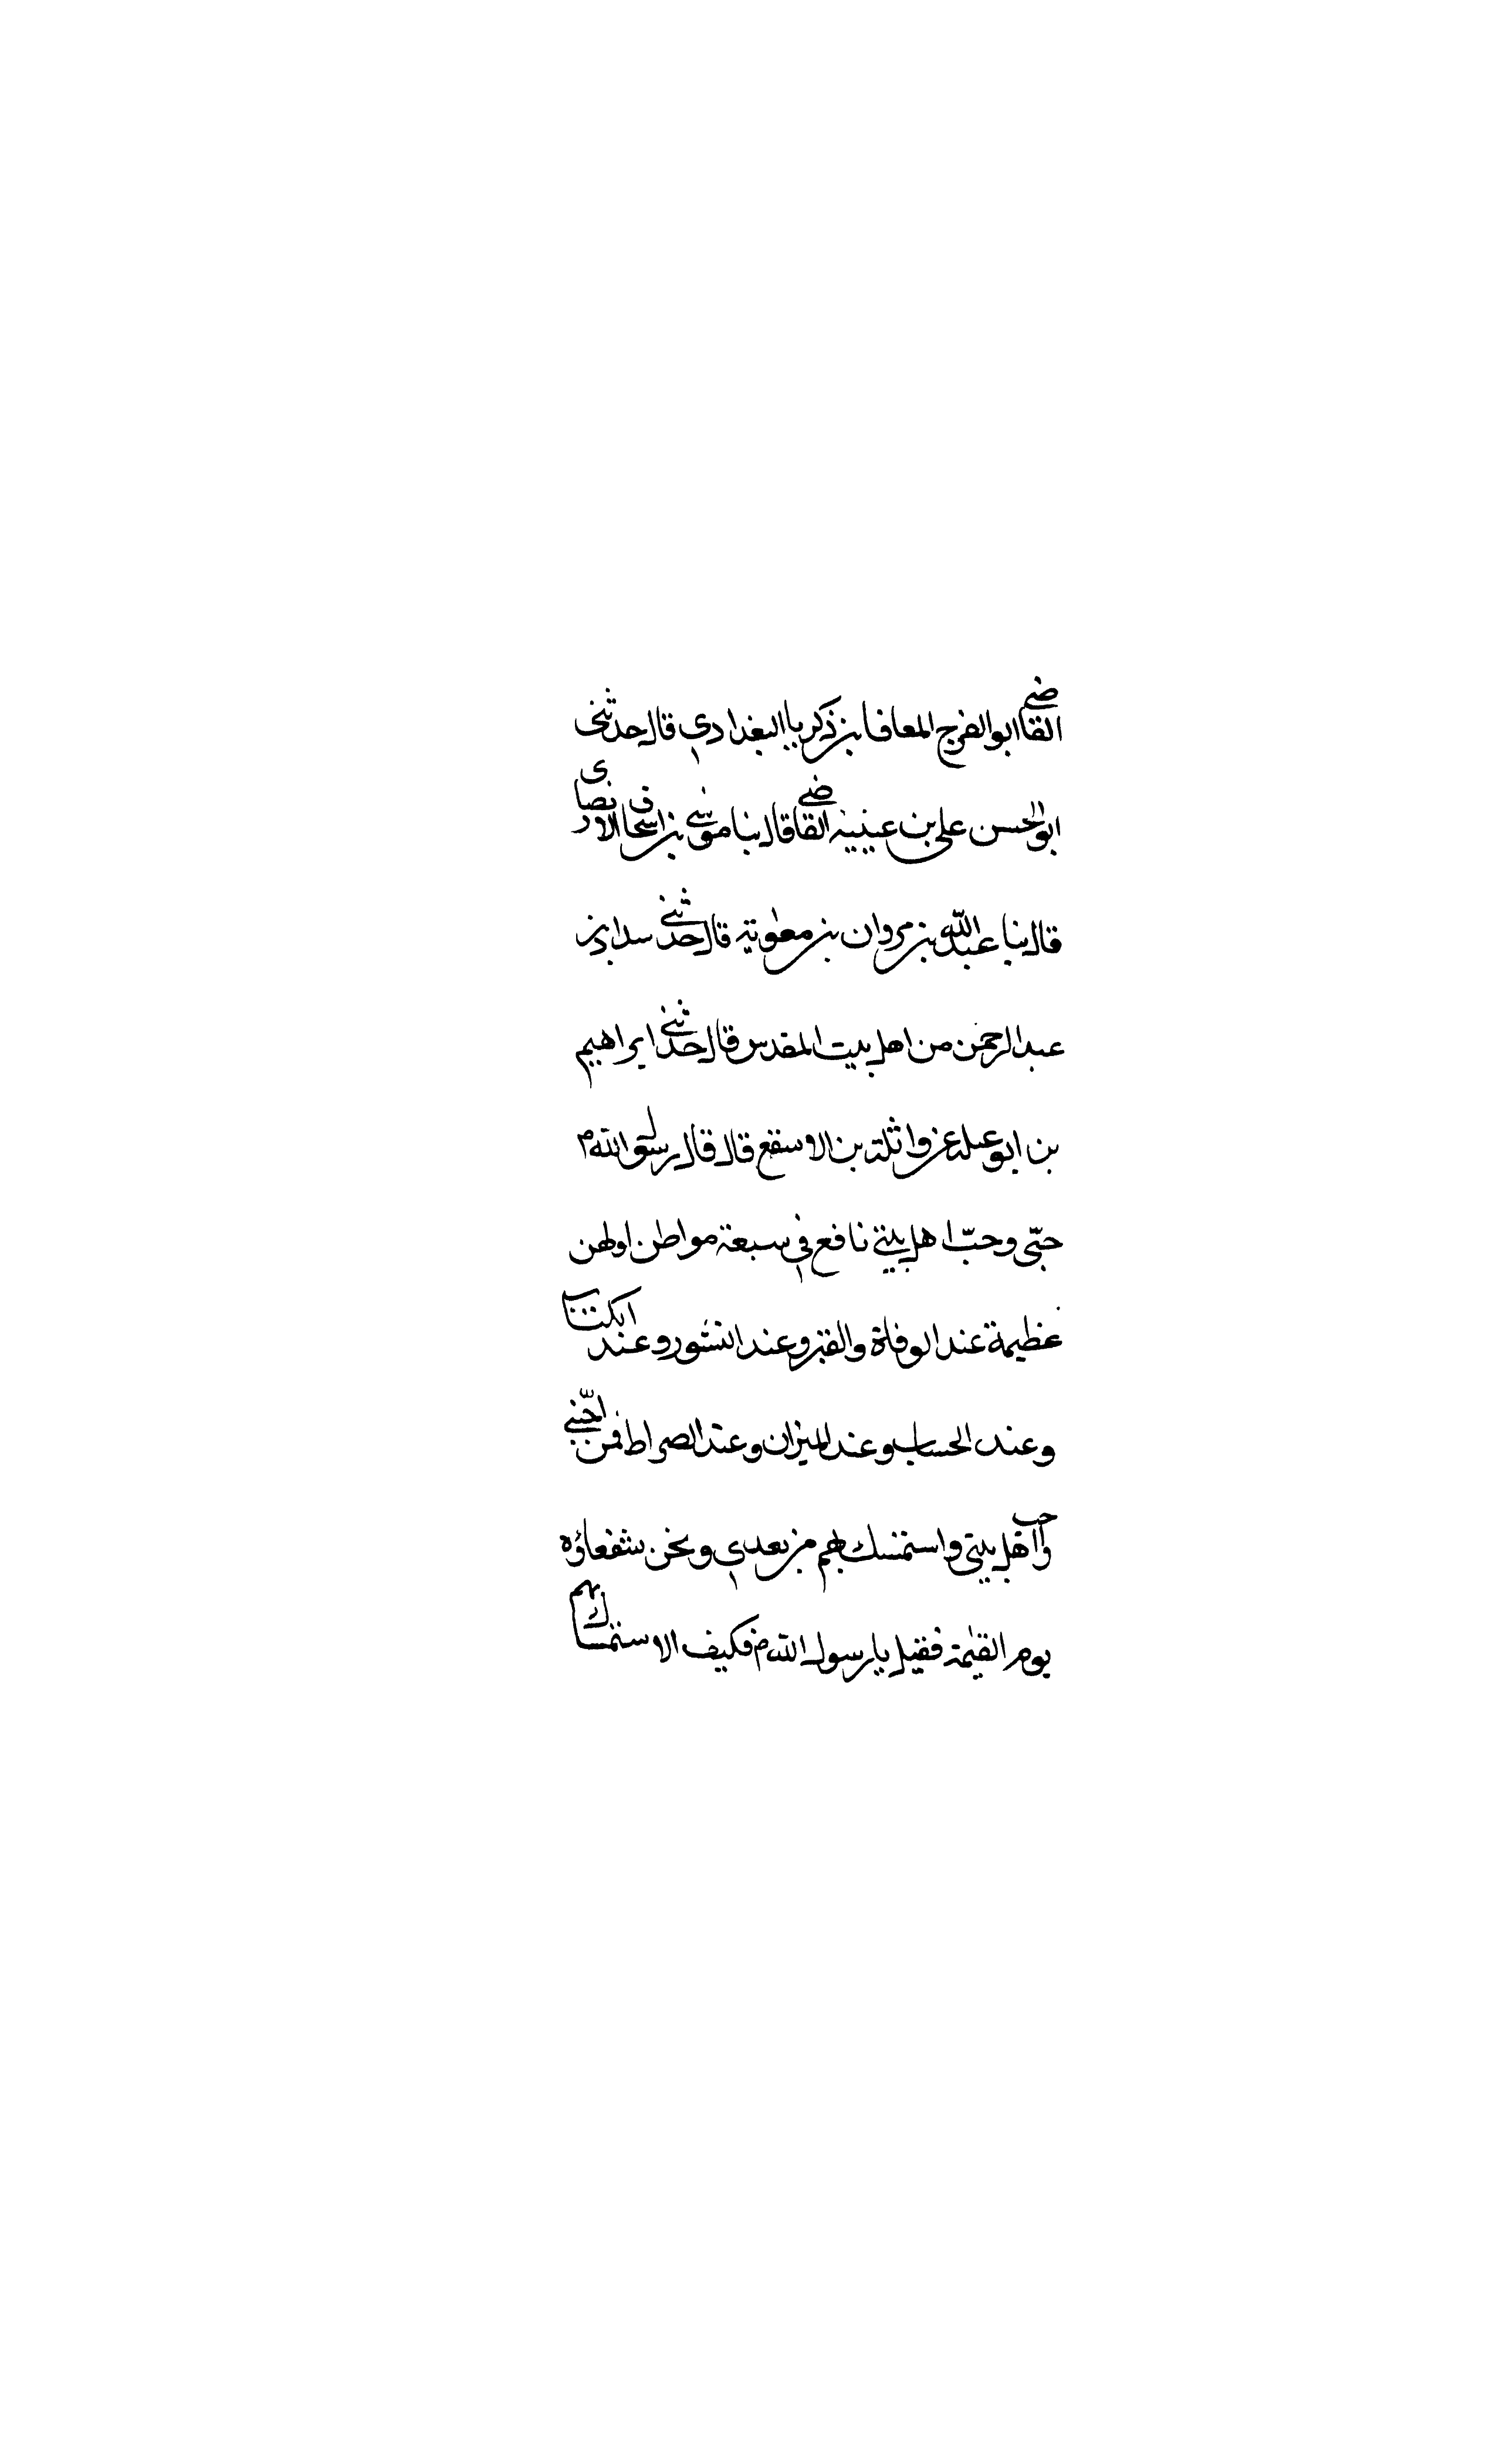 القاضي ابو الفرج المعافا بن زكريا البغدادي قال حدثني
ابو الحسن علي بن عيينة القاضي قال ثنا موسى بن اسحاق الانصاري
قال ثنا عبد الله بن مروان بن معوية قال حدثني سداد بن
عبد الرحمن من اهل بيت المقدس قال حدثني ابراهيم
بن ابو عبلة عن واثلة بن الاسقع قال قال رسول الله م
حبّي وحبّ اهل بيتي نافع في سبعة مواطن اولهن
عظيمة عند الوفاة والقبر وعند النشور وعند الكتاب
وعند الحساب وعند الميزان وعند الصراط فمن احبّني
وحب اهل بيتي واستمسك بهم من بعدي ونحن شفعاؤه
يوم القيمة فقيل يا رسول الله م فكيف الاستمساك بهم